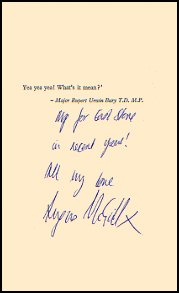 Yes yes yes! What's it mean?'
– Major Rupert Unwin Bury T.D. M.P.
for
in recent years!
All my love
Angus McGill x